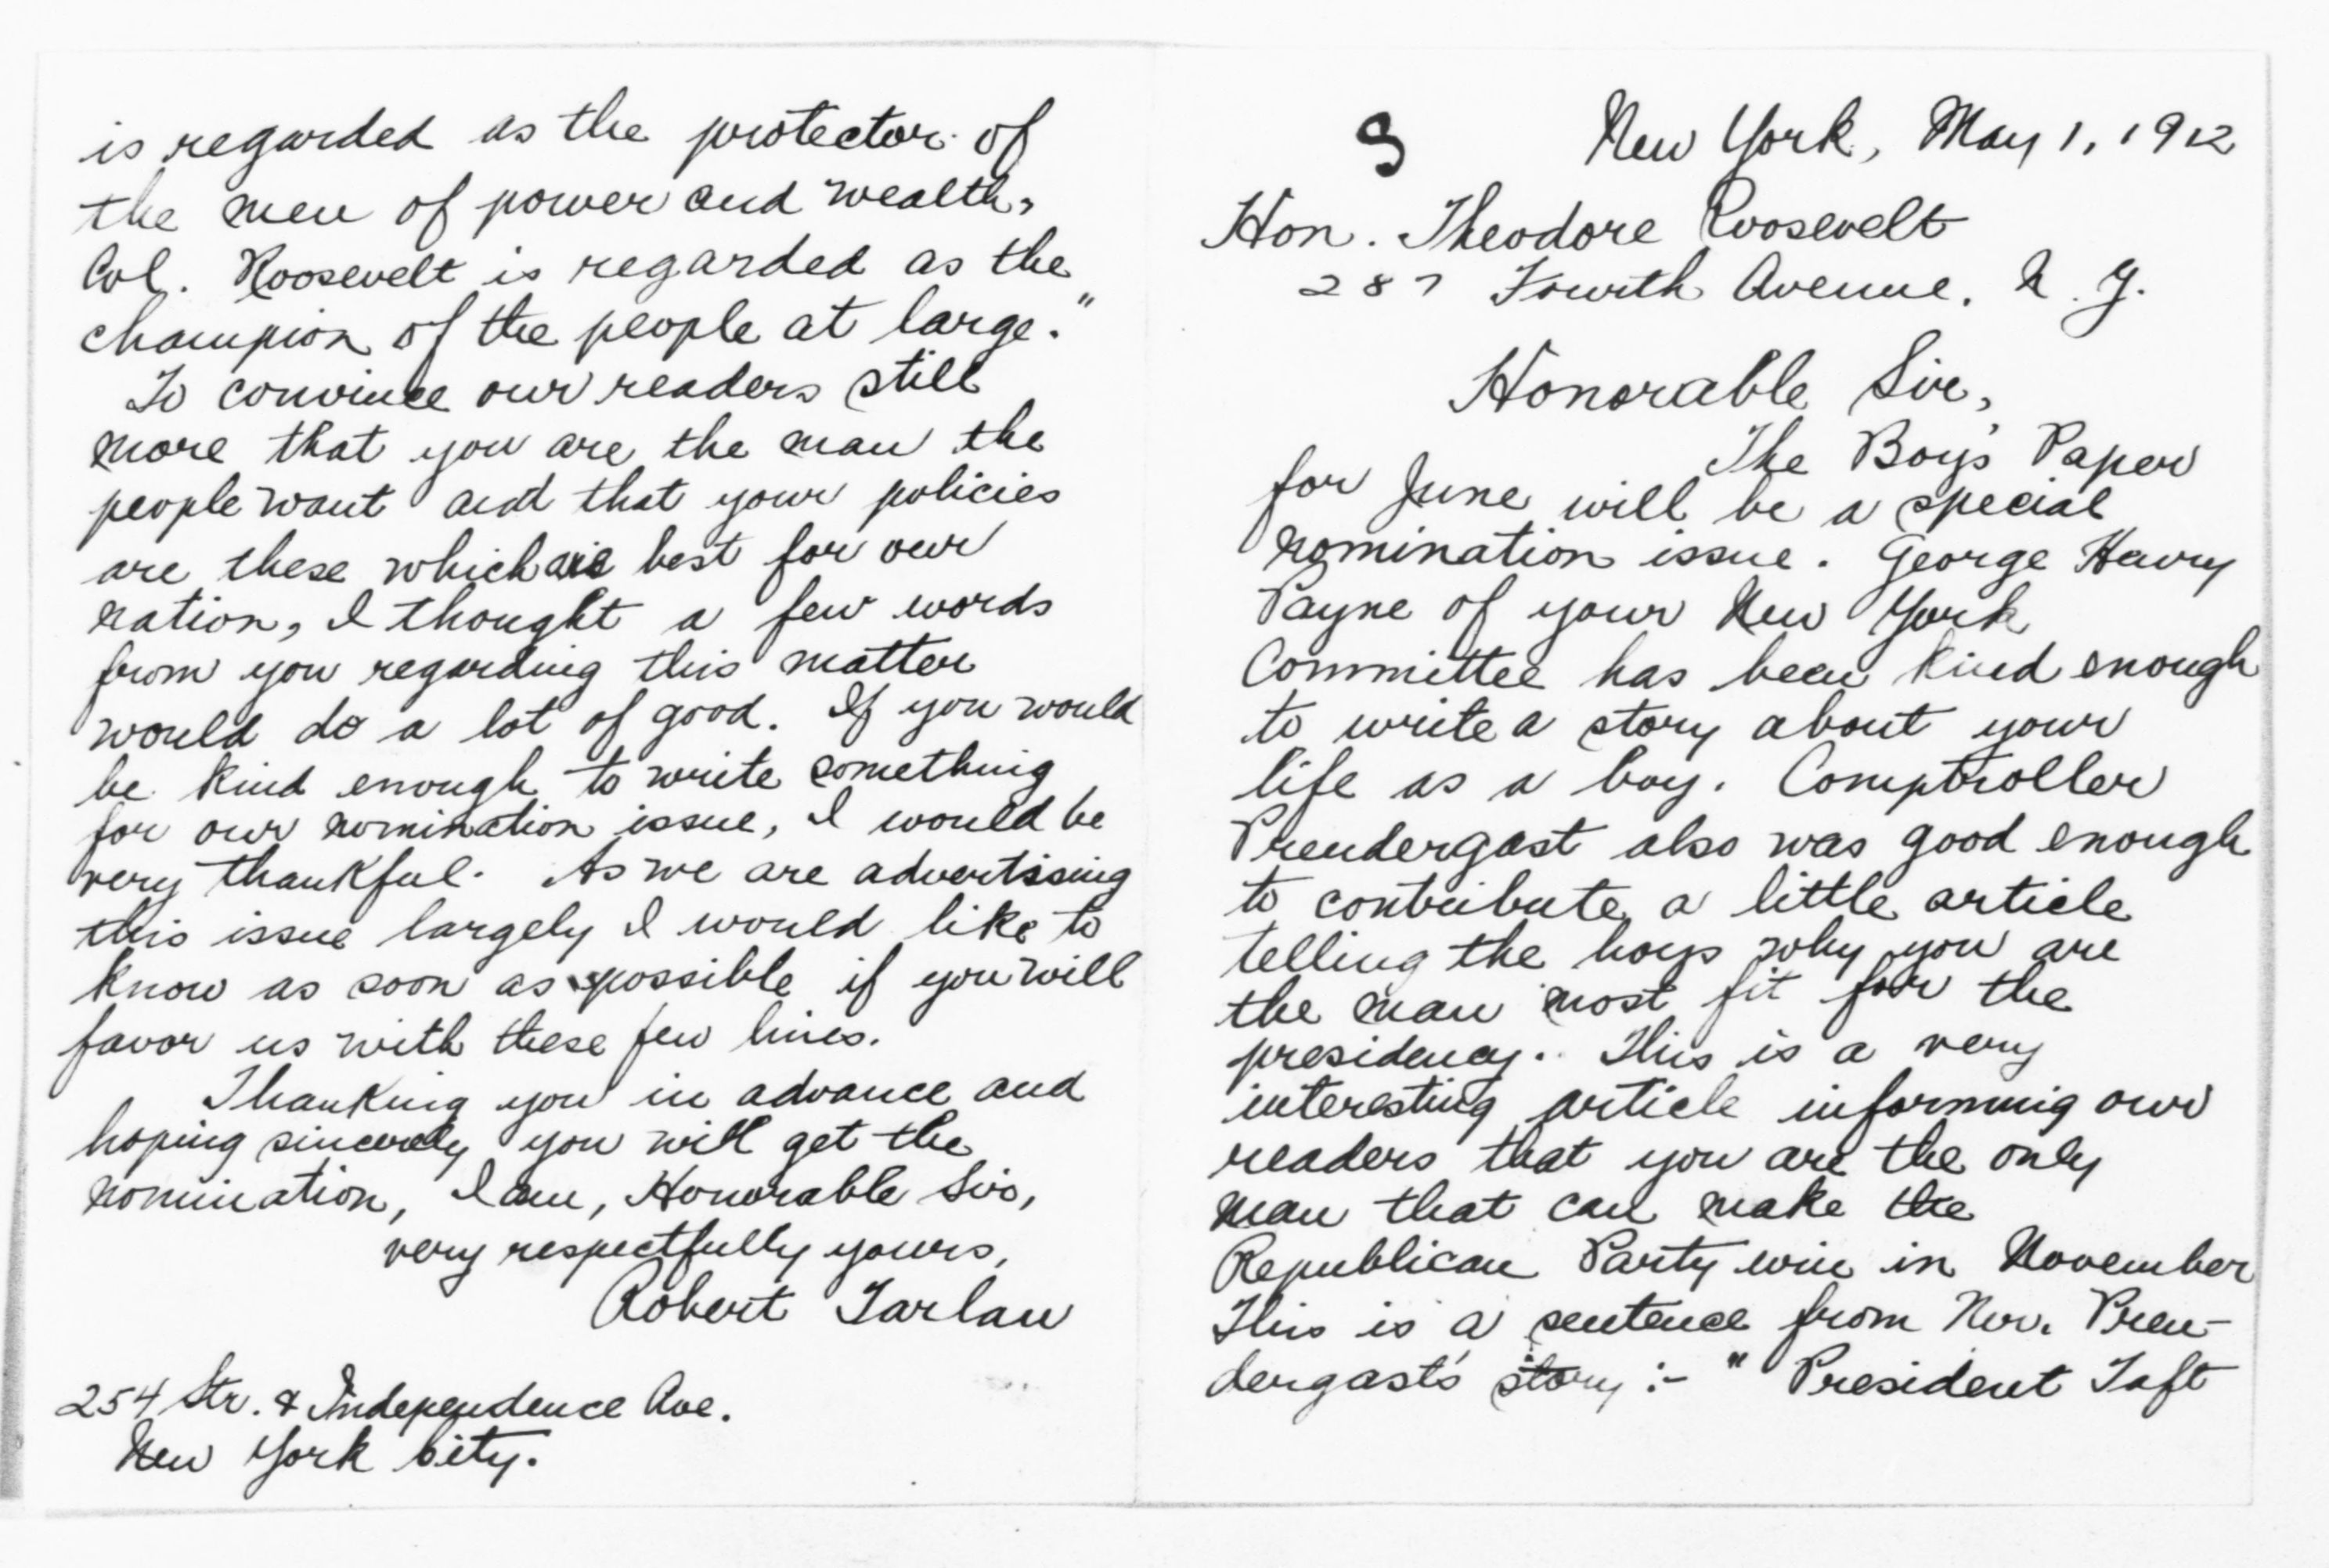 S
New York, May 1, 1912
Hon. Theodore Roosevelt
287 Fourth Avenue. N. Y.
Honorable Sir,
The Boys' Paper
for June will be a special
nomination issue. George Henry
Payne of your New York
Committee has been kind enough
to write a story about your
life as a boy. Comptroller
Prendergast also was good enough
to contribute a little article
telling the boys why you are
the man most fit for the
presidency. This is a very
interesting article informing our
readers that you are the only
man that can make the
Republican Party win in November
This is a sentence from Mr. Pren-
dergast's story :- " President Taft
is regarded as the protector of
the men of power and wealth,
Col. Roosevelt is regarded as the
champion of the people at large."
To convince our readers still
more that you are the man the
people want and that your policies
are these which are best for our
nation, I thought a few words
from you regarding this matter
would do a lot of good. If you would
be kind enough to write something
for our nomination issue, I would be
very thankful. As we are advertising
this issue largely I would like to
know as soon as possible if you will
favor us with these few lines.
Thanking you in advance and
hoping sincerely you will get the
nomination, I am, Honorable Sir,
very respectfully yours,
Robert Tarlau
254 Str. & Independence Ave.
New York City.